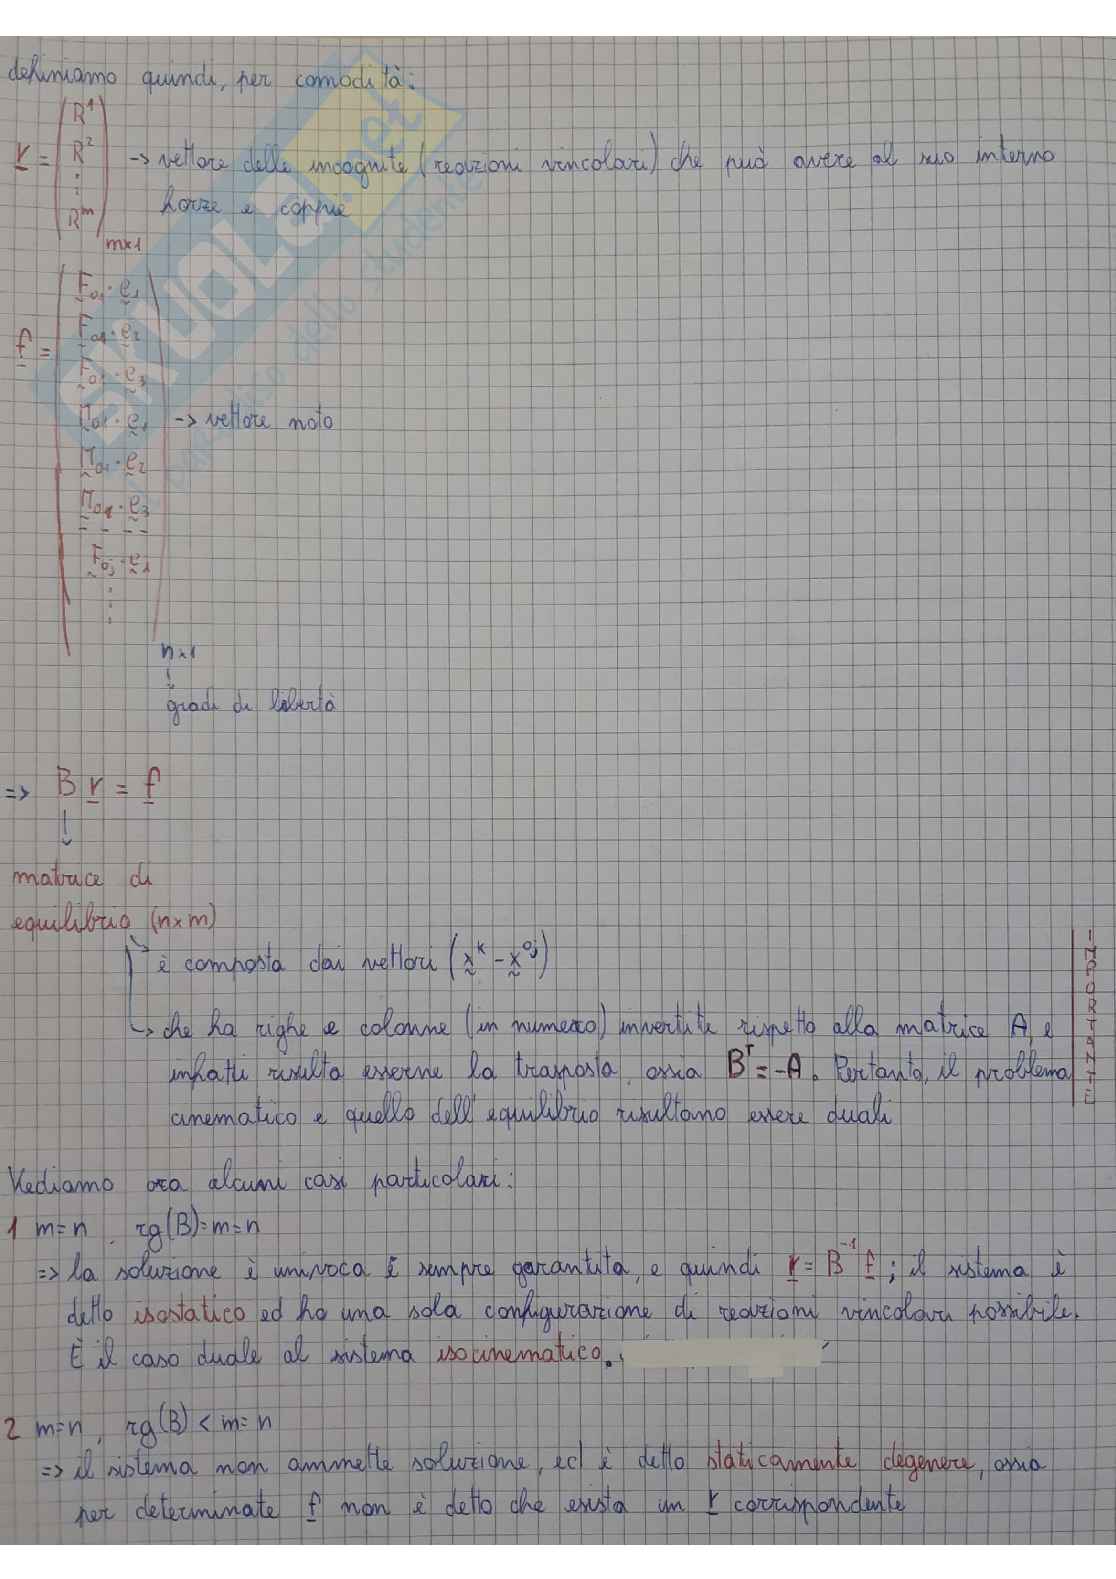 definiamo quindi, per comodità:
r = (R^1 R^2 ⋮ R^m) m×1 -> vettore delle incognite (reazioni vincolari) che può avere al suo interno
forze e coppie
f =
F_01 · e_1
F_01 · e_2
F_01 · e_3
M_01 · e_1 -> vettore noto
M_01 · e_2
M_01 · e_3
F_0j · e_1
⋮
n×1
↓
gradi di libertà
=> B r = f
↓
matrice di
equilibrio (n×m)
è composta dai vettori (x^k - x^0j)
-> che ha righe e colonne (in numero) invertite rispetto alla matrice A, e
infatti risulta esserne la trasposta, ossia B^T = -A. Pertanto, il problema
cinematico e quello dell'equilibrio risultano essere duali
IMPORTANTE
Vediamo ora alcuni casi particolari:
1 m=n, rg(B)=m=n
=> la soluzione è univoca e sempre garantita, e quindi r = B^-1 f; il sistema è
detto isostatico ed ha una sola configurazione di reazioni vincolari possibile.
È il caso duale al sistema isocinematico.
2 m=n, rg(B) < m=n
=> il sistema non ammette soluzione, ed è detto staticamente degenere, ossia
per determinate f non è detto che esista un r corrispondente
SKUOLA.net